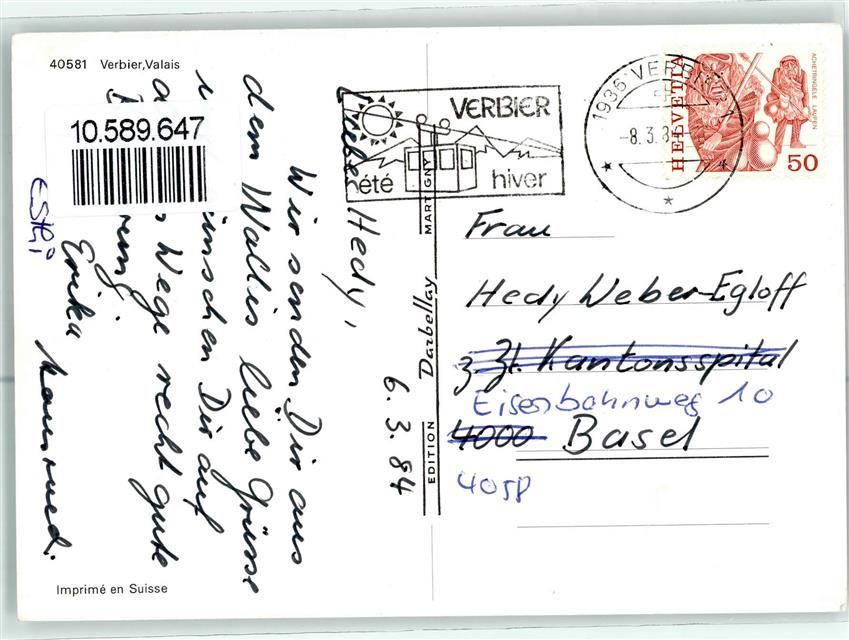 40581 Verbier,Valais
10.589.647
6. 3. 84
Liebe Hedy,
Wir senden Dir aus
dem Wallis liebe Grüsse
u wünschen Dir auf
Wege recht gute
Erika
Esthi
EDITION Darbellay MARTIGNY
Imprimé en Suisse
VERBIER
été hiver
1936 VERBIER
-8.3.8
HELVETIA
ACHETRINGELE LAUPEN
50
Frau
Hedy Weber-Egloff
z. Zt. Kantonsspital
Eisenbahnweg 10
4000 Basel
4058